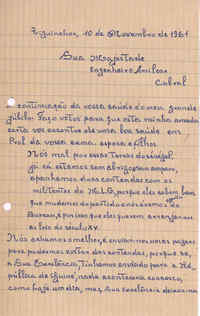 Ziguinchor, 10 de Novembro de 1961
Sua Magestade
Engenheiro Amilcar
Cabral
a continuação da vossa saúde é o meu grande
júbilo. Faço votos para que esta minha amada
carta vos encontre de uma boa saúde em
Prol da vossa esposa e filhos.
Nós mal por essas terras do senegal,
já cá estamos sem abrigo sem amparo,
apanhamos duas contendas com os
militantes do M.L.G. porque eles sabem bem
que mudamos de partido e nós somos do
Bureau, e por isso que eles querem arranjar-nos
do século XV.
Nós achamos melhor, e enviar-nos umas pagas
para podermos evitar das contendas, porque se,
a Sua Excelência, tinham enviado para a Re-
pública da Guiné, nada acontecerá connosco,
como hoje em dia, mas Sua Excelência deixou-nos